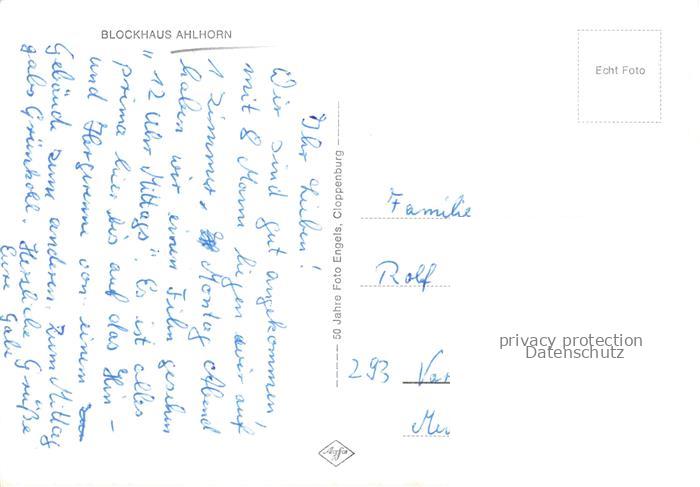 BLOCKHAUS AHLHORN
Ihr Lieben!
Wir sind gut angekommen,
mit 8 Mann liegen wir auf
1 Zimmer. Montag Abend
haben wir einen Film gesehn
"12 Uhr Mittags". Es ist alles
prima hier bis auf das Hin-
und Hergerenne von einem
Gebäude zum anderen. Zum Mittag
gabs Grünkohl. Herzliche Grüße
Eure Gabi
50 Jahre Foto Engels, Cloppenburg
Echt Foto
Familie
Rolf
293 Var
Agfa
privacy protection
Datenschutz